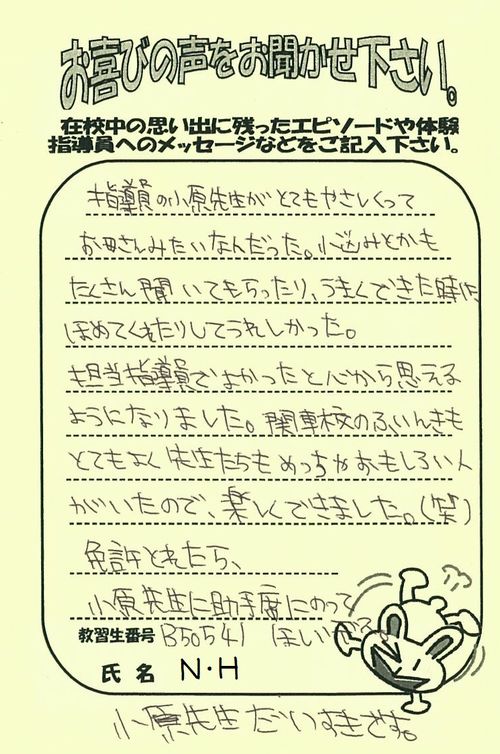 お喜びの声をお聞かせ下さい。
在校中の思い出に残ったエピソードや体験
指導員へのメッセージなどをご記入下さい。
指導員の小原先生がとてもやさしくって
お母さんみたいなんだった。小凶みとかも
たくさん聞いてもらったり、うまくできた時に
ほめてくれたりしてうれしかった。
担当指導員でよかったと心から思える
ようになりました。関車校のふいんきも
とてもよく先生たちもめっちゃおもしろい人
がいたので、楽しくできました。(笑)
免許とれたら、
小原先生に助手席にのって
教習生番号 B50541 ほしいです。
氏名 N・H
小原先生だいすきです。